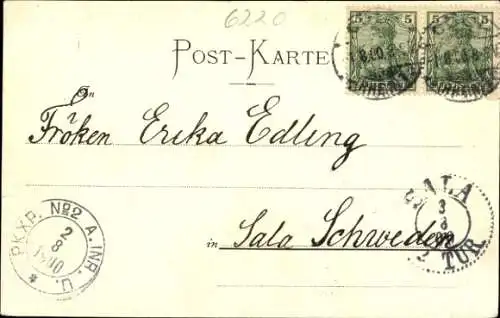 6220
5 5
5 5
POST-KARTE
An
Fröken Erika Edling
in Sala Schweden
PKXP. No 2 A. INR. U.
2
8
1900
SALA
3
8
1900
2 TUR